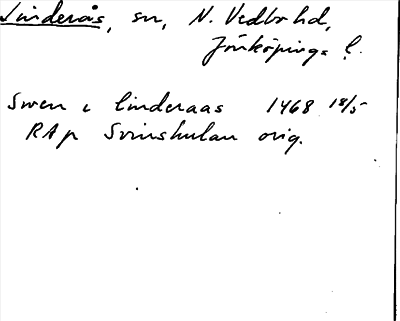 Linderås, sn, N. Vedbo hd,
Jönköpings l.
Swen i linderaas 1468 18/5
RAp Svinshulan orig.